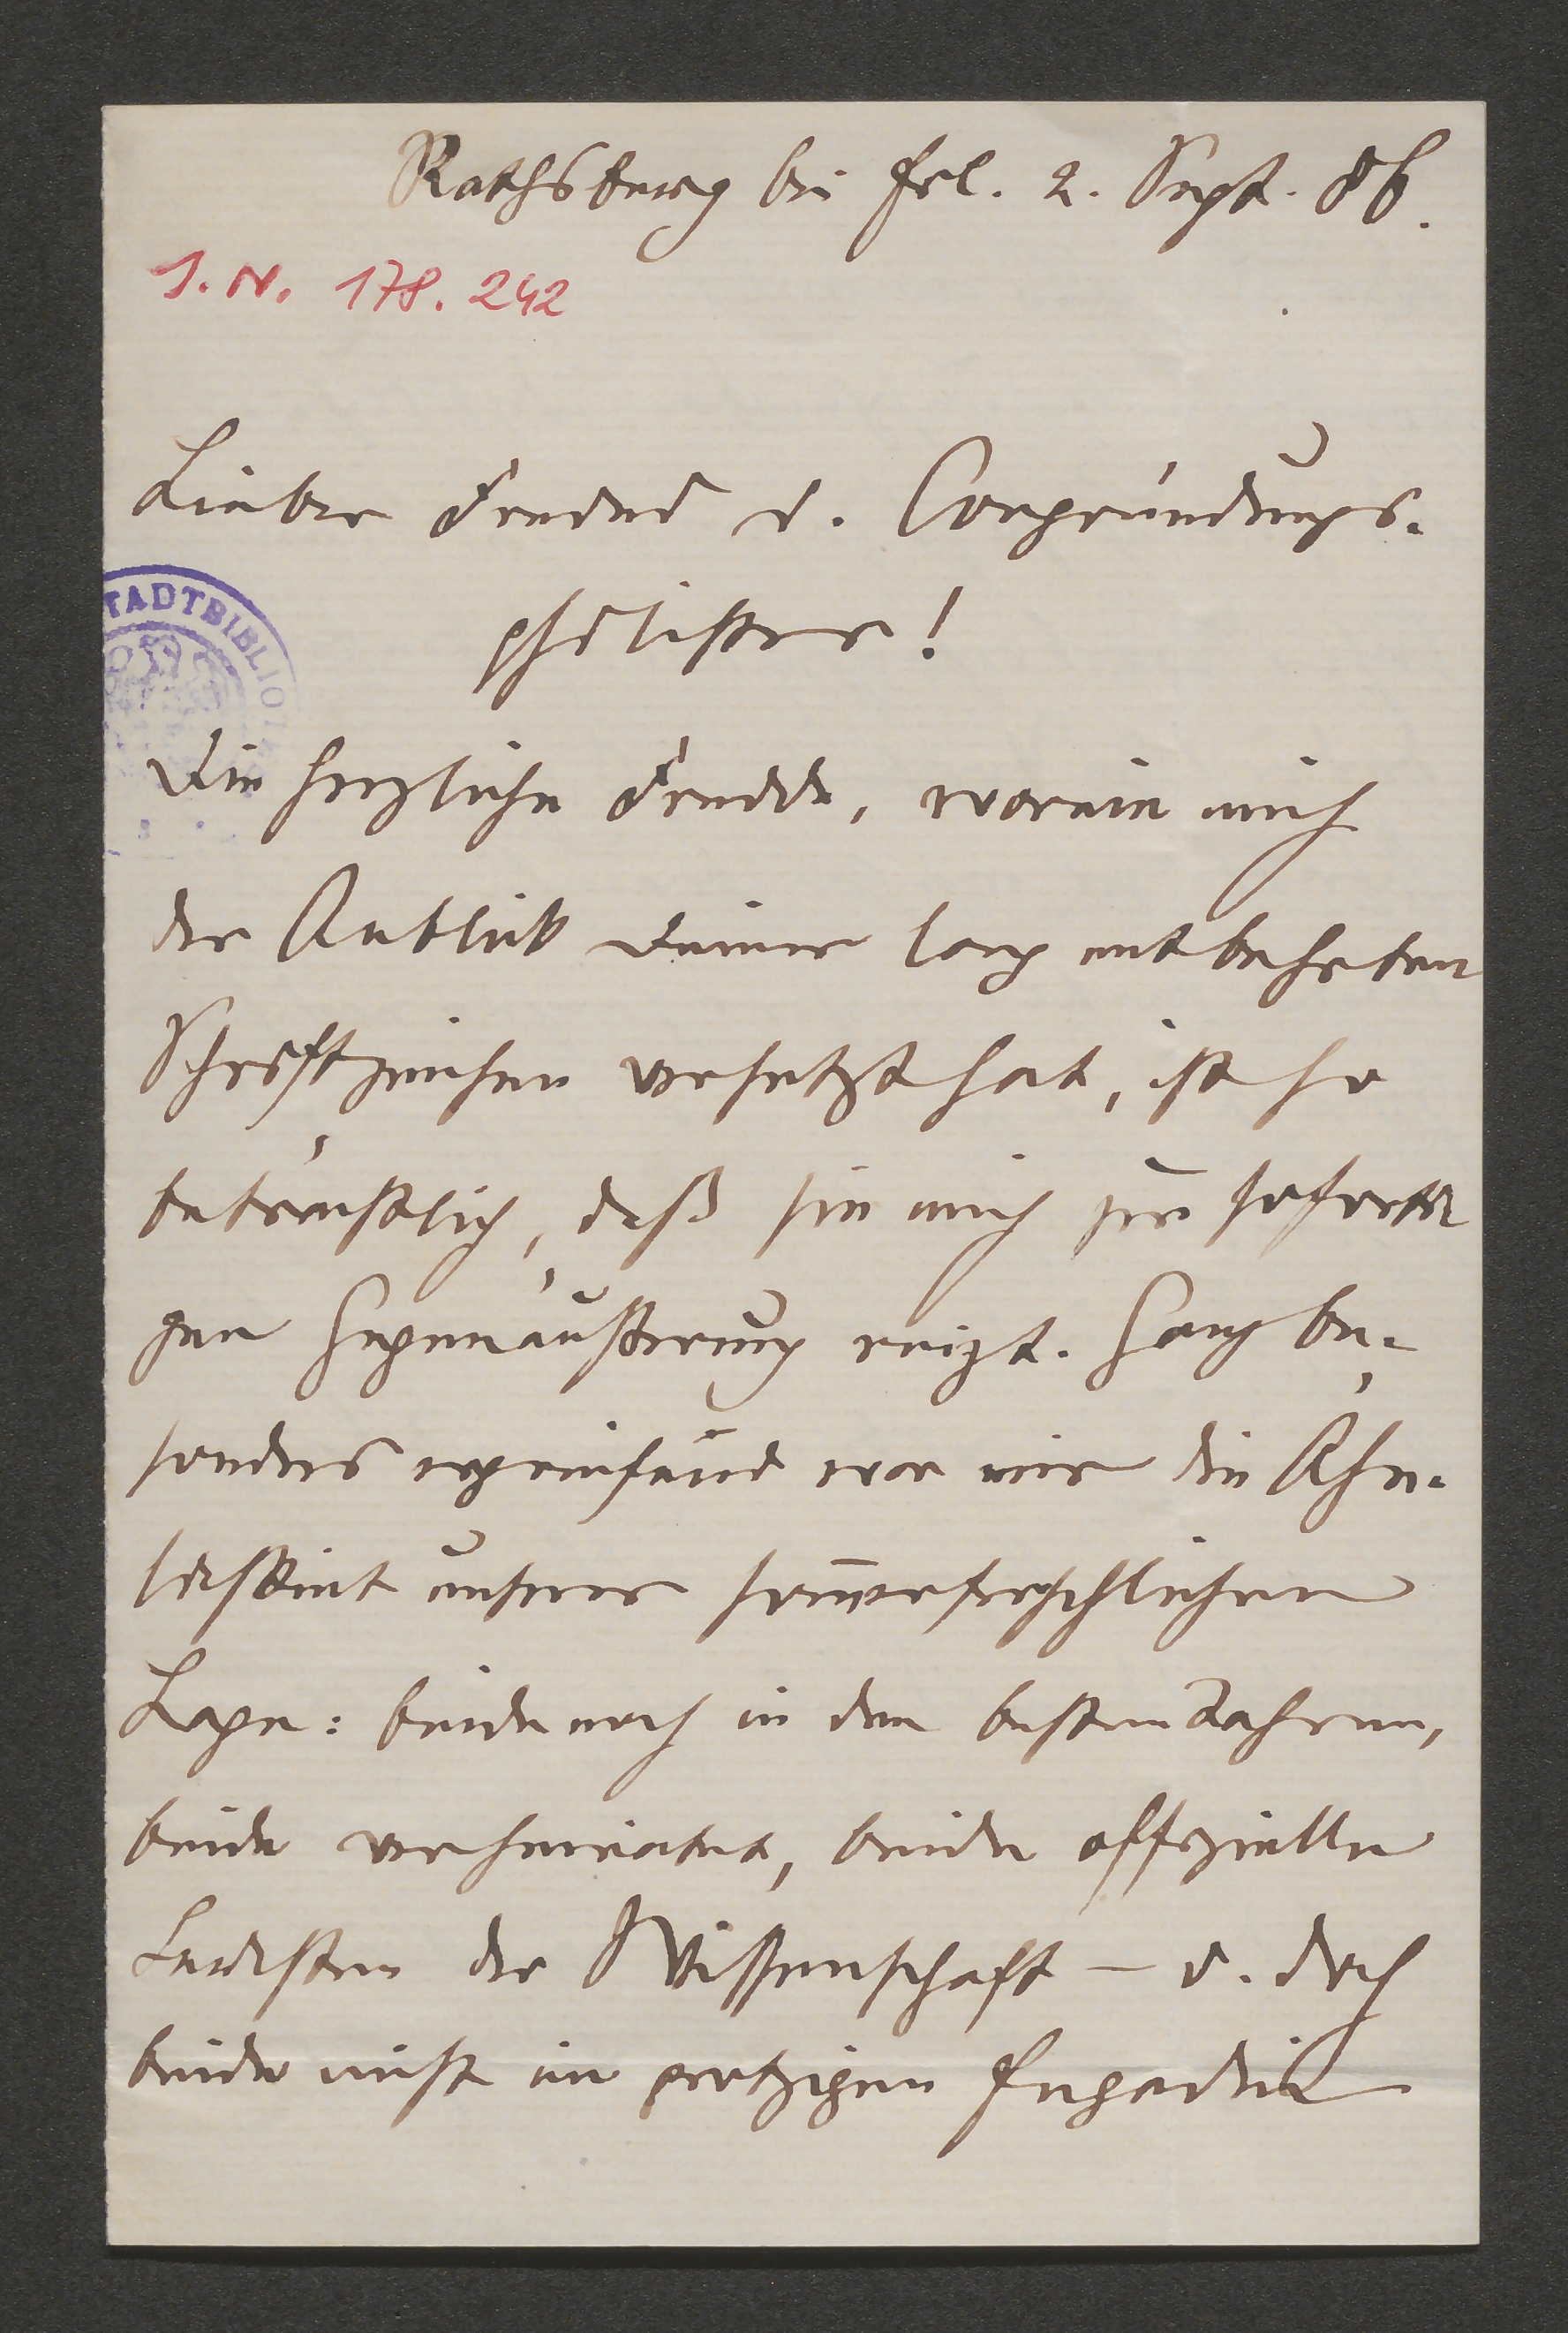 Rathsberg bei Erl. 2. Sept. 86.
I. N. 178. 242
Lieber Freund u. Corpsgründungs-
philister!
STADTBIBLIOT
Die herzliche Freude, worein mich
der Anblick Deiner lang entbehrten
Schriftzeichen versetzt hat, ist so
beträchtlich, daß sie mich zur soforti
gen Gegenäußerung reizt. Ganz be-
sonders ergreifend war mir die Ähn-
lichkeit unserer sommerfrischlichen
Lage: beide noch in den besten Jahren,
beide verheiratet, beide offizielle
Leuchten der Wissenschaft – u. doch
beide nicht im protzigen Engadin